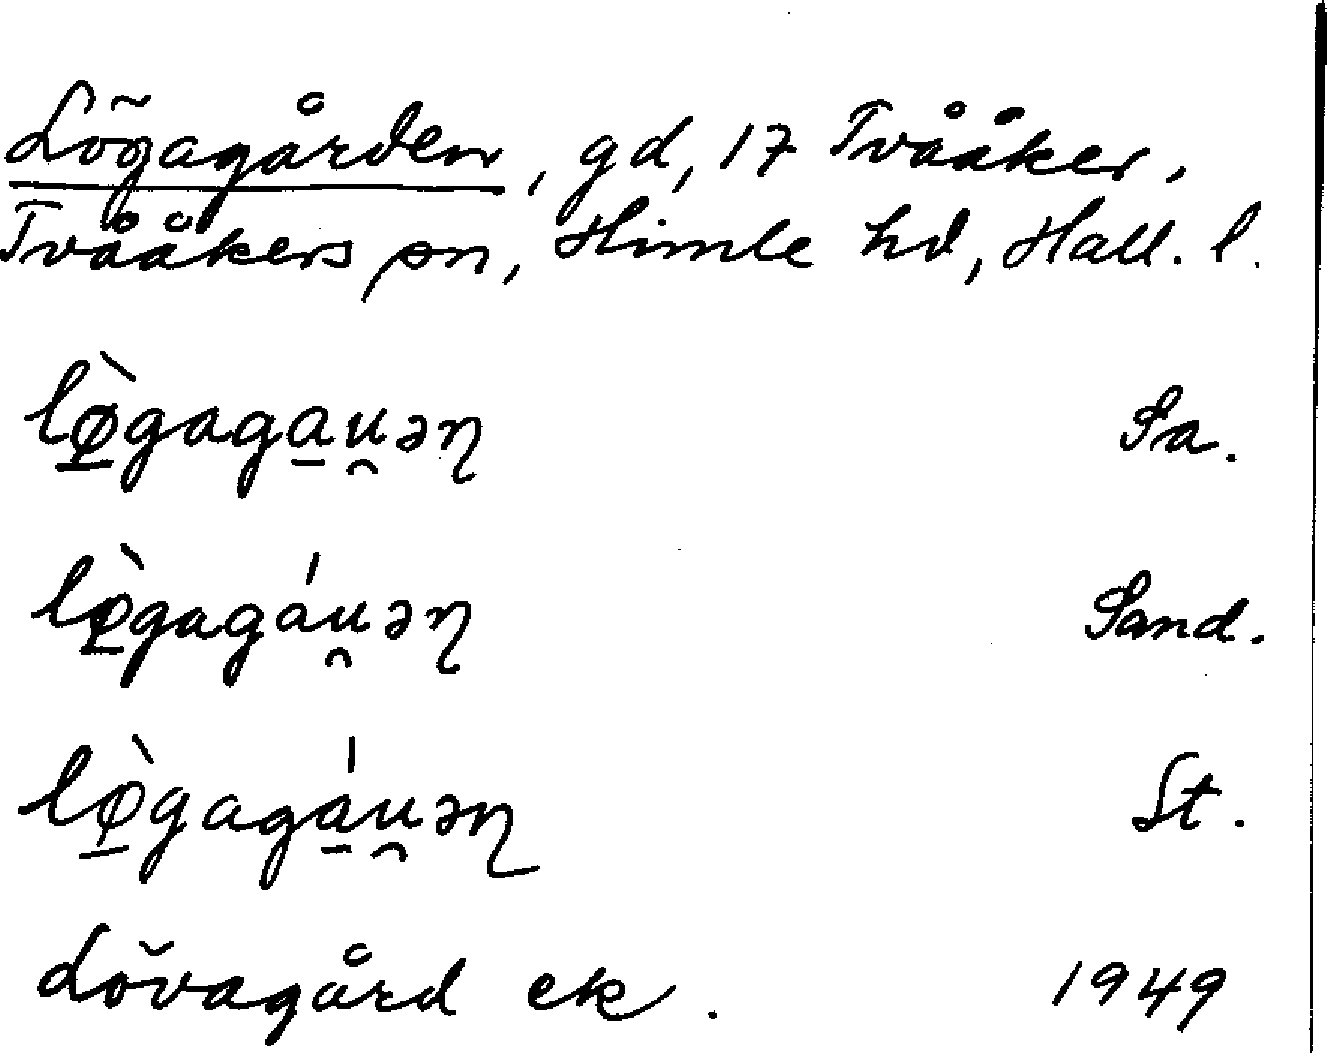 Lögagården, gd, 17 Tvååker,
Tvååkers sn, Himle hd, Hall. l.
lø̱̀gaga̱u̯əɳ Sa.
lø̱̀gagáu̯əɳ Sand.
lø̱̀gagá̱u̯əɳ St.
Lövagård ek. 1949